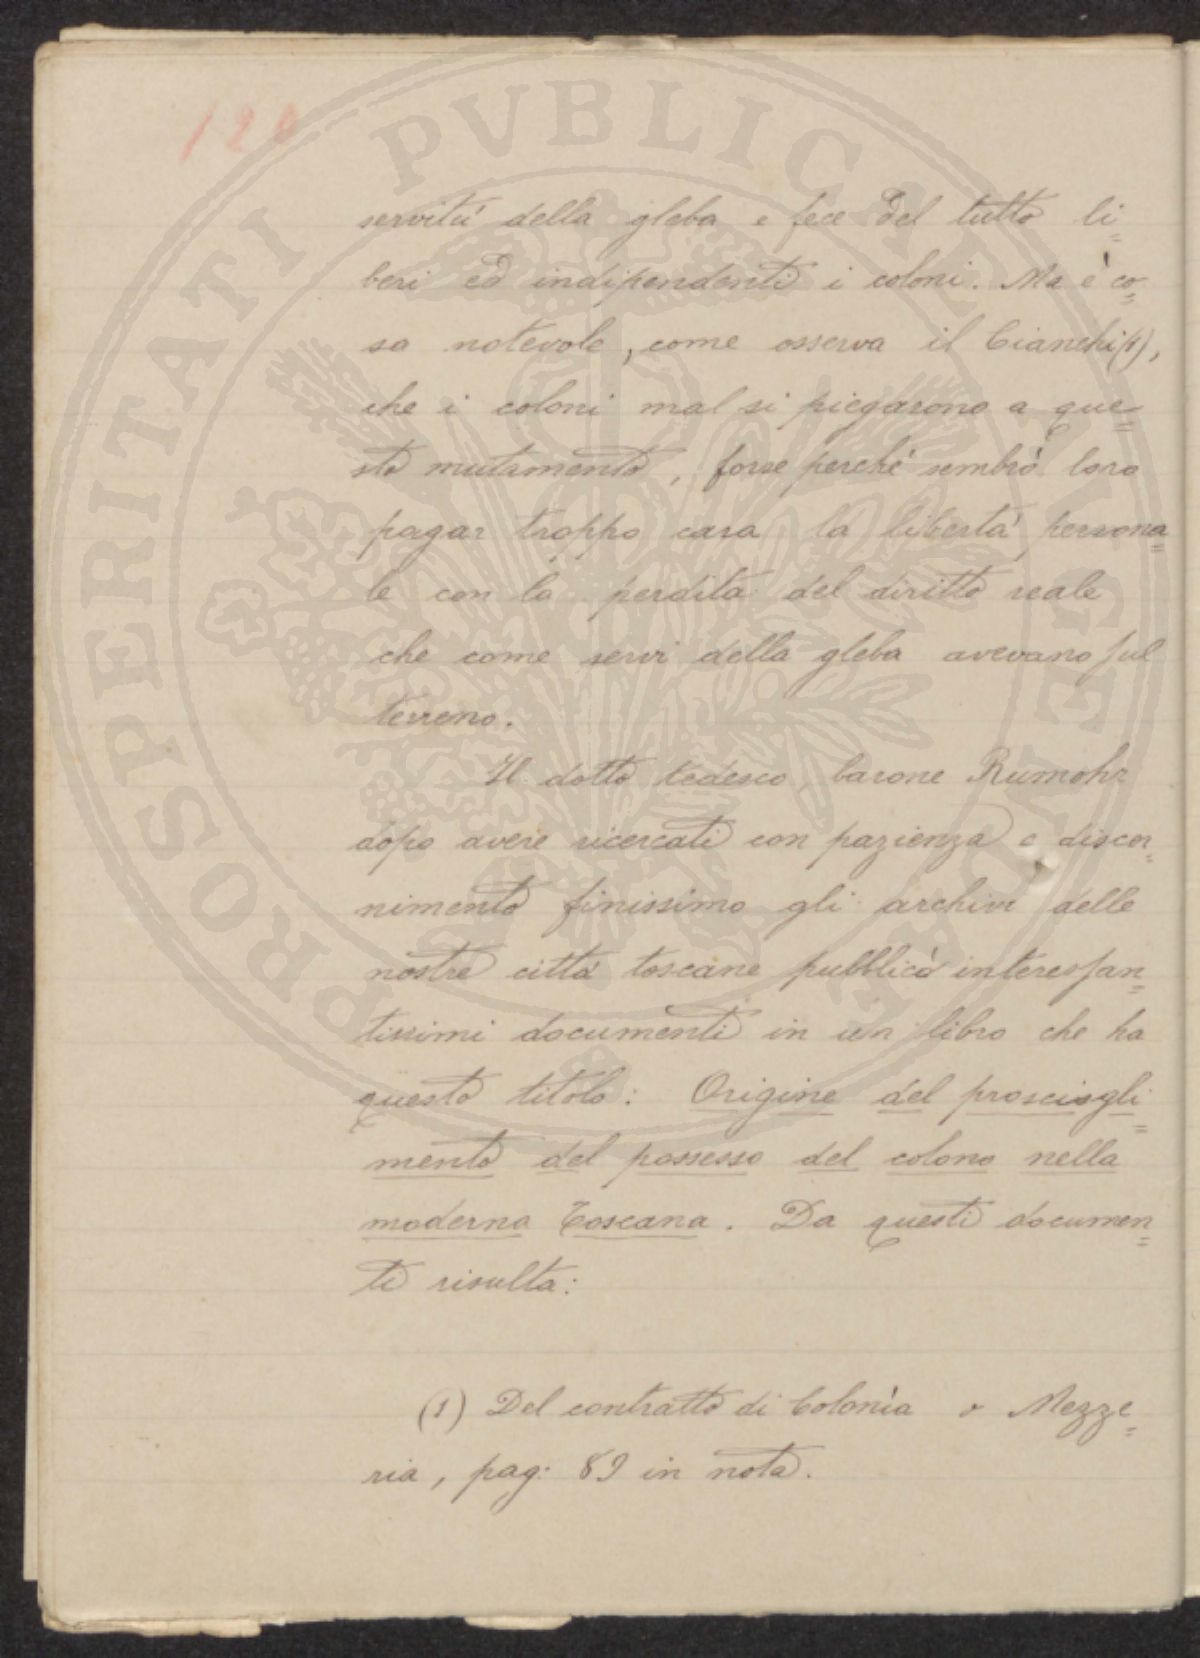 120
servitù della gleba e fece del tutto li=
beri ed indipendenti i coloni. Ma è co=
sa notevole, come osserva il Cianchi(1),
che i coloni mal si piegarono a que=
sto mutamento, forse perché sembrò loro
pagar troppo cara la libertà persona=
le con la perdita del diritto reale
che come servi della gleba avevano sul
terreno.
Il dotto tedesco, barone Rumohr
dopo avere ricercati con pazienza e discer=
nimento finissimo gli archivi delle
nostre città toscane pubblicò interessan=
tissimi documenti in un libro che ha
questo titolo: Origine del prosciogli=
mento del possesso del colono nella
moderna Toscana. Da questi documen=
ti risulta:
(1) Del contratto di Colonìa o Mezze=
ria, pag: 89 in nota.
PROSPERITATI PVBLICAE AVGENDAE